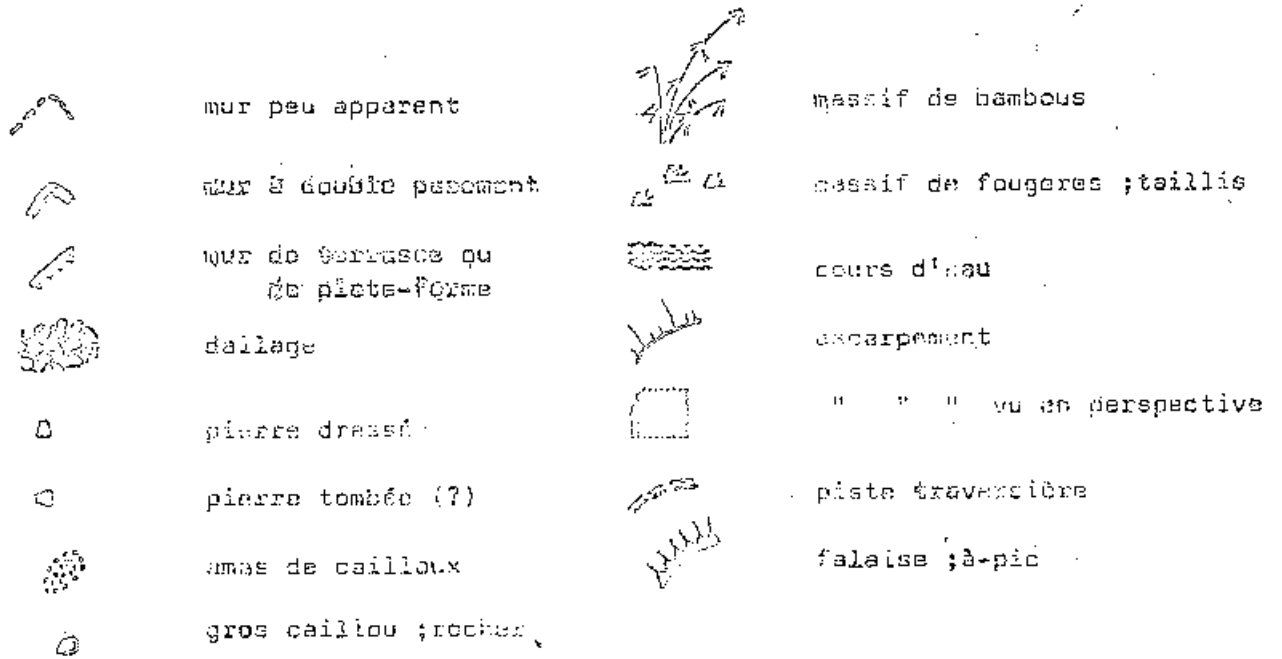 mur peu apparent
mur à double parement
mur de terrasse ou
de plate-forme
dallage
pierre dressé
pierre tombée (?)
amas de cailloux
gros caillou ;rocher
massif de bambous
massif de fougeres ;taillis
cours d'eau
escarpement
" " " vu en perspective
piste traversière
falaise ;à-pic